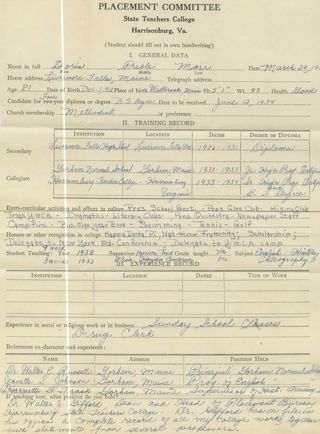 PLACEMENT COMMITTEE
State Teachers College
Harrisonburg, Va.
(Student should fill out in own handwriting)
I. GENERAL DATA
Name in full Doris Preble Marr Date March 29, 19
First Middle Last
Home address Livermore Falls, Maine Telegraph address
Age 21 Place of Birth Westbrook, Maine Ht. 5' 1" Wt. 98 Health Good
Candidate for two-year diploma or degree. B.S. degree Date to be received June 12, 1934
Church membership Methodist or preference
II. TRAINING RECORD
INSTITUTION LOCATION DATES DEGREE OR DIPLOMA
Secondary Livermore Falls High School Livermore Falls Me. 1926-1930 Diploma
Gorham Normal School Gorham, Maine 1930-1933
Collegiate Harrisonburg Teachers College Harrisonburg Virginia 1933-1934 B.S. Degree
Extra-curricular activities and offices in college Pres. School Govt. - Pres. Glee Club - Hiking Club
Treas. Y.W.C.A. - Dramatics - Literary Clubs - Orchestra - Newspaper Staff
Camp Fire - Year book - Swimming - Tennis - Golf
Honors or other recognition in college Kappa Delta Pi, Nat. Honor Fraternity; Scholarship;
Delegate to New York Ed. Conference; Delegate to Y.W.C.A. Camp
Student Teaching: Year 1932 Supervisor Grade taught Subject English - History
3 weeks 1933 Geography
III. EXPERIENCE RECORD
INSTITUTION LOCATION DATES TYPE OF WORK
Experience in social or religious work or in business Sunday School Classes
Drug Clerk
References and address:
NAME ADDRESS POSITION HELD
Dr. Walter E. Russell Gorham, Maine Principal Gorham Normal School
Jeanette S. Johnson Gorham, Maine Prof. of English
Harriette G. Trask Gorham, Maine Supervisor of Student Training
If teaching now, what position do you hold?
Dr. Walter J. Gifford Dean and Head of Placement Bureau
Harrisonburg State Teachers College Dr. Gifford has on file in
his office a complete record of all my college work together
with statements from several professors.